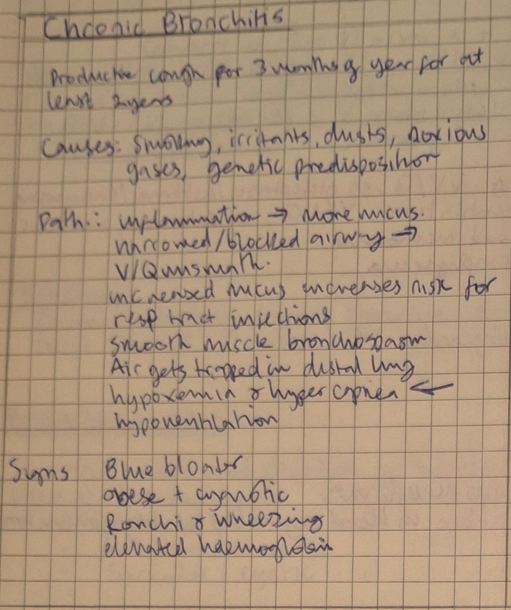 Chronic Bronchitis
Productive cough for 3 months of year for at
least 2 years
Causes: Smoking, irritants, dusts, noxious
gases, genetic predisposition
Path.: inflammation → more mucus.
narrowed/blocked airway →
V/Q mismatch.
increased mucus increases risk for
resp tract infections
smooth muscle bronchospasm
Air gets trapped in distal lung
hypoxemia & hypercapnea ←
hypoventilation
Signs Blue bloater
obese + cyanotic
Ronchi & wheezing
elevated haemoglobin